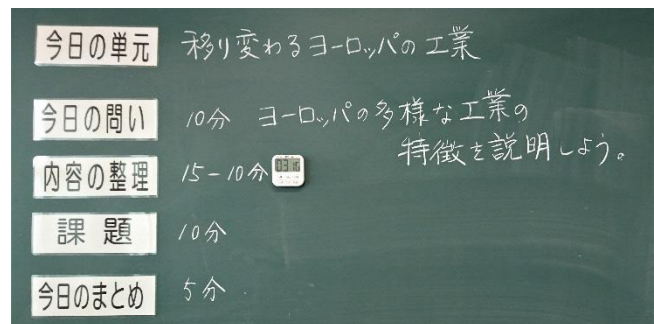 今日の単元 移り変わるヨーロッパの工業
今日の問い 10分 ヨーロッパの多様な工業の
特徴を説明しよう。
内容の整理 15-10分
課題 10分
今日のまとめ 5分